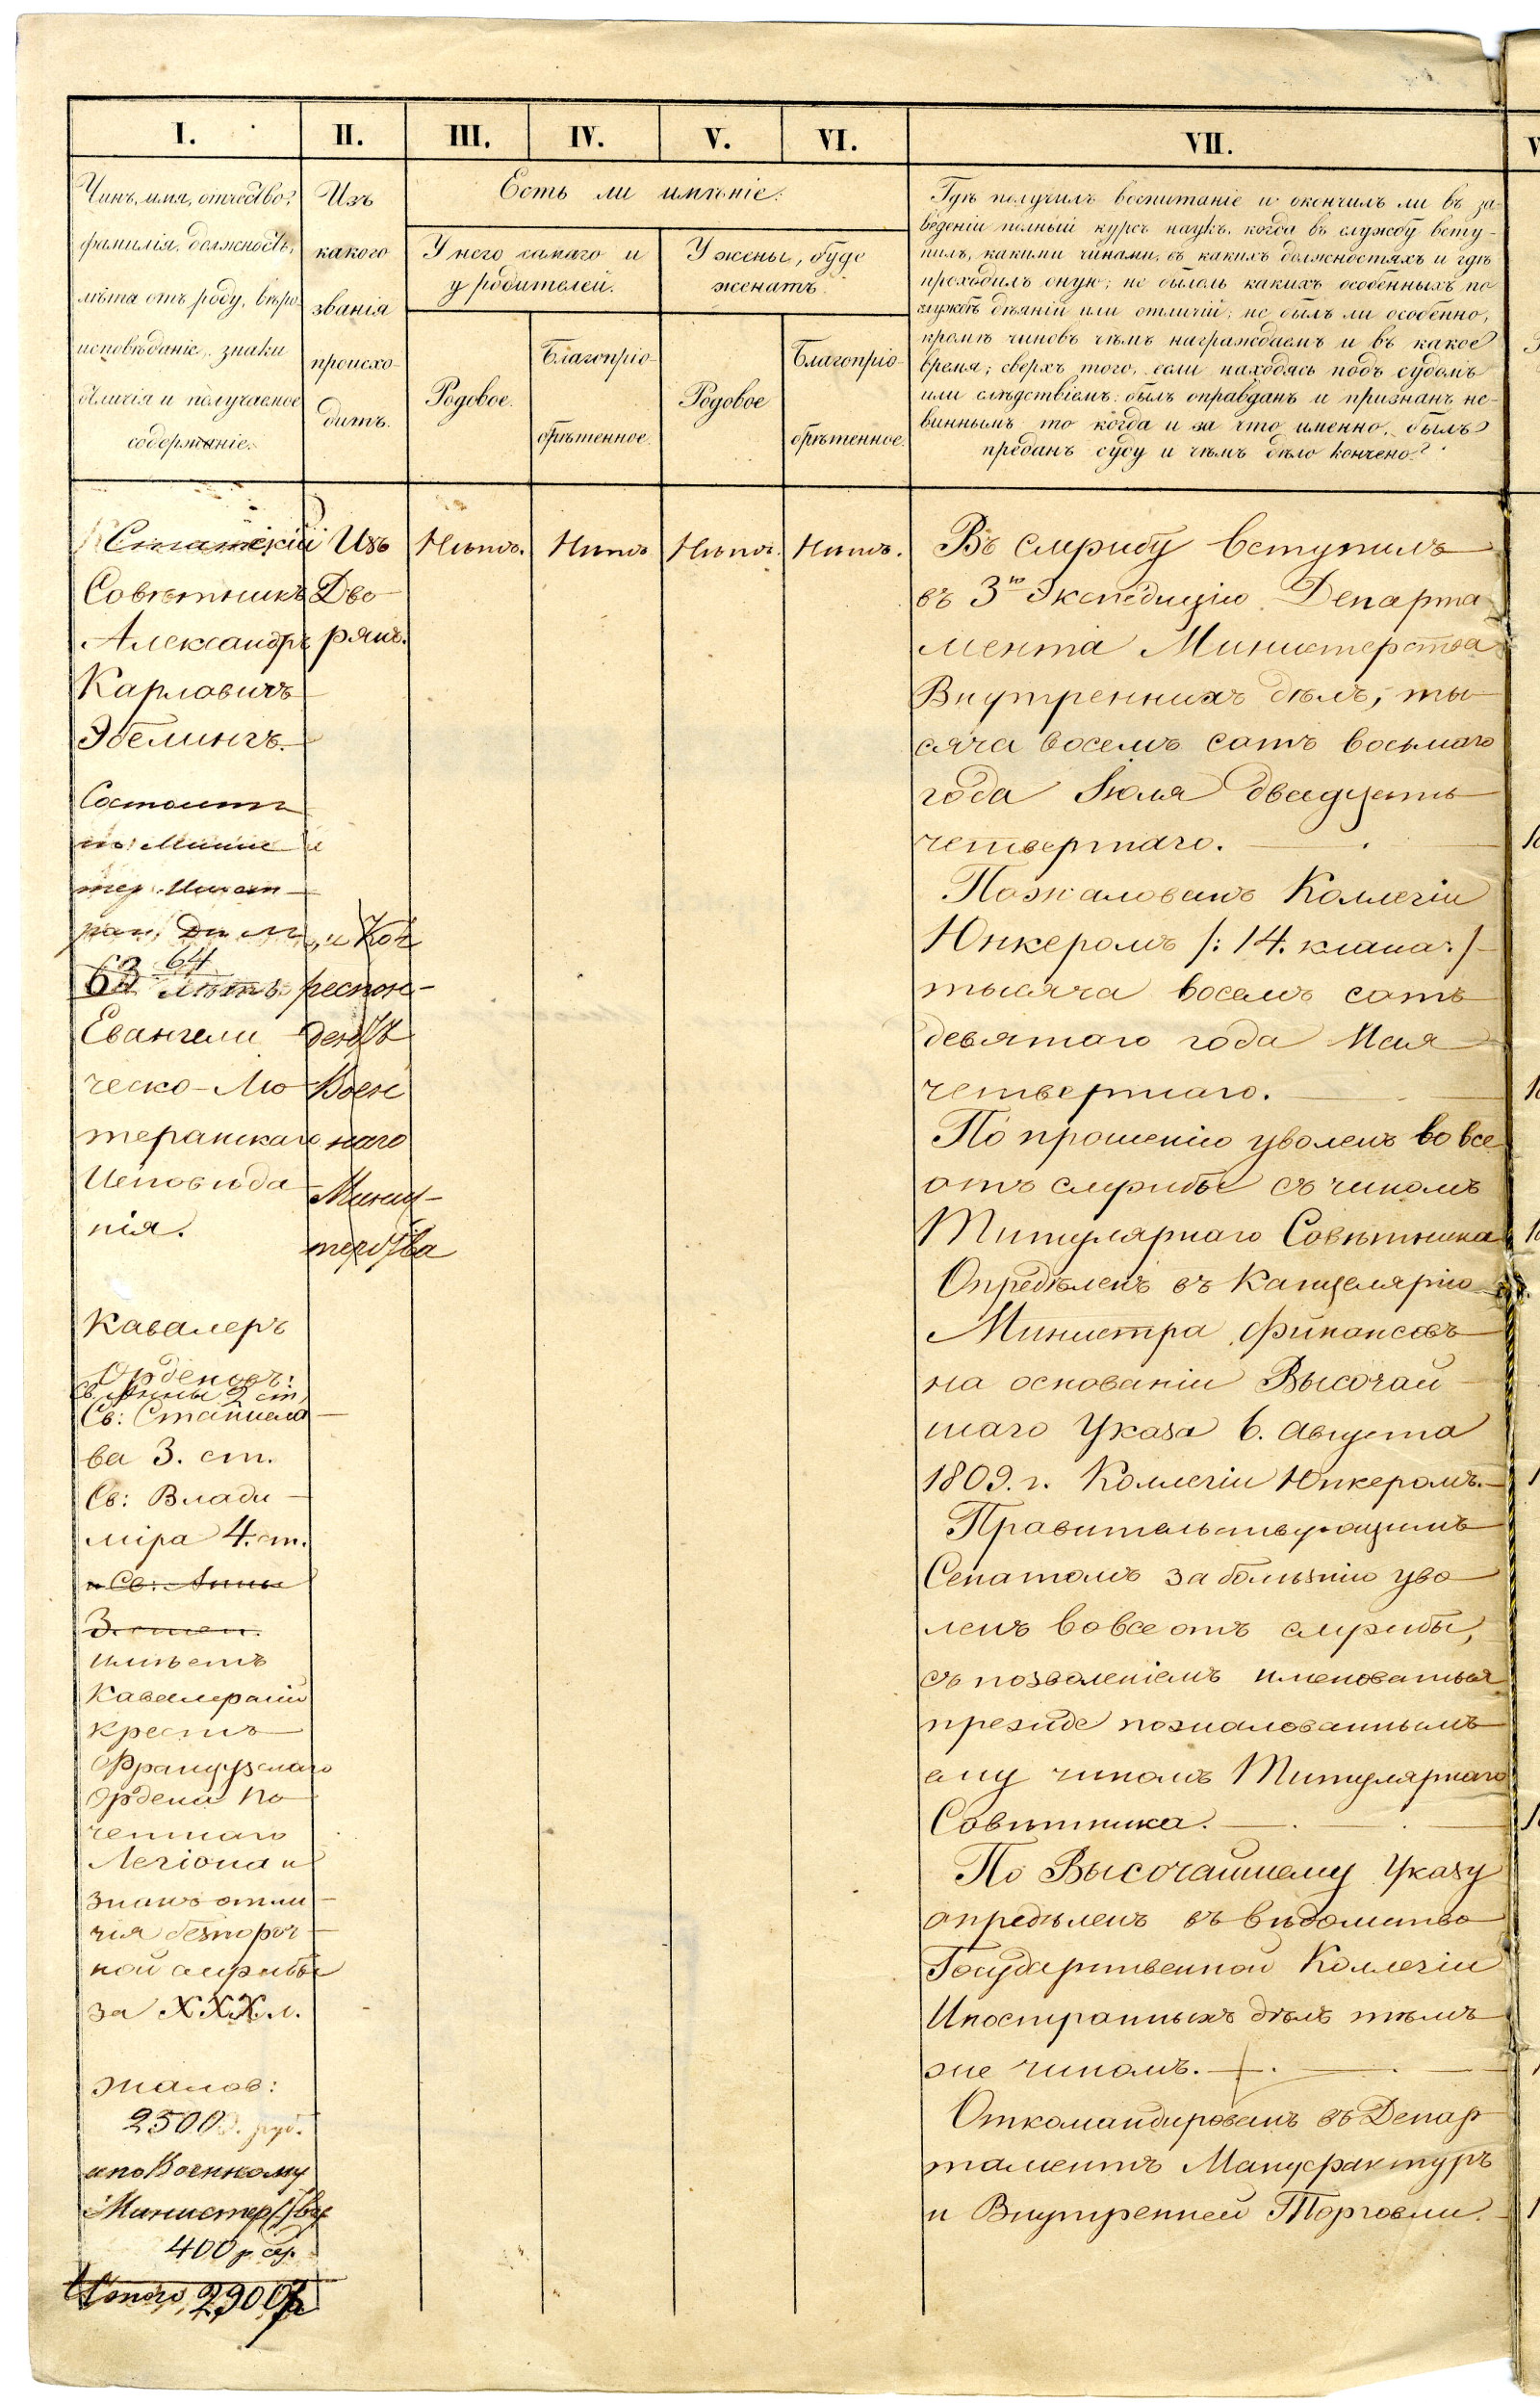 I.
II.
III.
IV.
V.
VI.
VII.
Чинъ, имя, отчество,
фамилія, должность,
лѣта отъ роду, вѣро
исповѣданіе, знаки
отличія и получаемое
содержаніе.
Изъ
какого
званія
происхо-
дитъ.
Есть ли имѣніе.
У него самаго и
у родителей.
У жены, буде
женатъ.
Родовое.
Благопріо-
брѣтенное.
Родовое
Благопріо-
брѣтенное.
Гдѣ получилъ воспитаніе и окончилъ ли въ за-
веденіи полный курсъ наукъ, когда въ службу всту-
пилъ, какими чинами, въ какихъ должностяхъ и гдѣ
проходилъ оную; не былоль какихъ особенныхъ по
службѣ дѣяній или отличій; не былъ ли особенно,
кромѣ чиновъ чѣмъ награждаемъ и въ какое
время; сверхъ того, если находясь подъ судомъ
или слѣдствіемъ, былъ оправданъ и признанъ не-
виннымъ то когда и за что именно, былъ
преданъ суду и чѣмъ дѣло кончено?
Статскій
Совѣтникъ
Александръ
Карловичъ
Эбелингъ.
Состоитъ
63 64
лѣтъ
Евангели
ческо-Лю
теранскаго
Исповѣда
нія.
Кавалеръ
Орденовъ:
Св. Анны 2 ст,
Св: Станисла
ва 3. ст.
Св: Влади
міра 4. ст.
и Св: Анны
3. степ.
имѣетъ
Кавалерскій
крестъ
Французскаго
Ордена По
четнаго
Легіона и
знакъ отли
чія безпороч
ной службы
за XXX л.
жалов:
2500 р. руб.
и по Военному
Министерству
400 р. сер.
Итого 2900 р
Изъ
Дво
рянъ.
и Кор
респон-
дентъ
Воен
наго
Минис-
терства
Нѣтъ.
Нѣтъ
Нѣтъ.
Нѣтъ.
Въ службу вступилъ
въ 3ю Экспедицію Департа
мента Министерства
Внутреннихъ дѣлъ, ты
сяча восемь сотъ восьмаго
года Іюля двадцать
четвертаго.
Пожалованъ Коллегіи
Юнкеромъ /: 14. класа :/
тысяча восемь сотъ
девятаго года Мая
четвертаго.
По прошенію уволенъ вовсе
отъ службы съ чиномъ
Титулярнаго Совѣтника
Опредѣленъ въ Канцелярію
Министра Финансовъ
на основаніи Высочай
шаго Указа 6. Августа
1809. г. Коллегіи Юнкеромъ.
Правительствующимъ
Сенатомъ за болѣзнію уво
ленъ вовсе отъ службы,
съ позволеніемъ именоваться
прежде пожалованнымъ
ему чиномъ Титулярнаго
Совѣтника.
По Высочайшему Указу
опредѣленъ въ вѣдомство
Государственной Коллегіи
Иностранныхъ дѣлъ тѣмъ
же чиномъ.
Откомандированъ въ Депар
таментъ Мануфактуръ
и Внутренней Торговли.